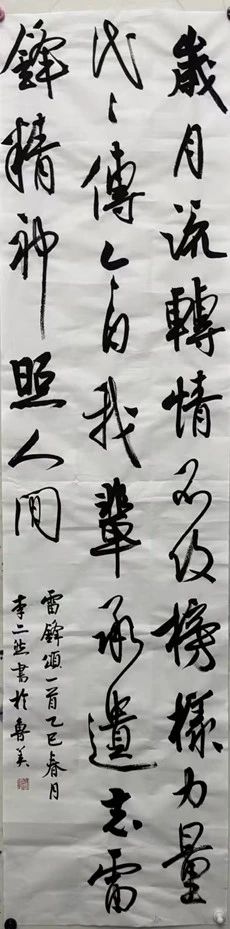 歲月流轉情不改榜樣力量
代〻傳今日我輩承遺志雷
鋒精神照人間
雷鋒頌一首乙巳春月
李二然書於魯美